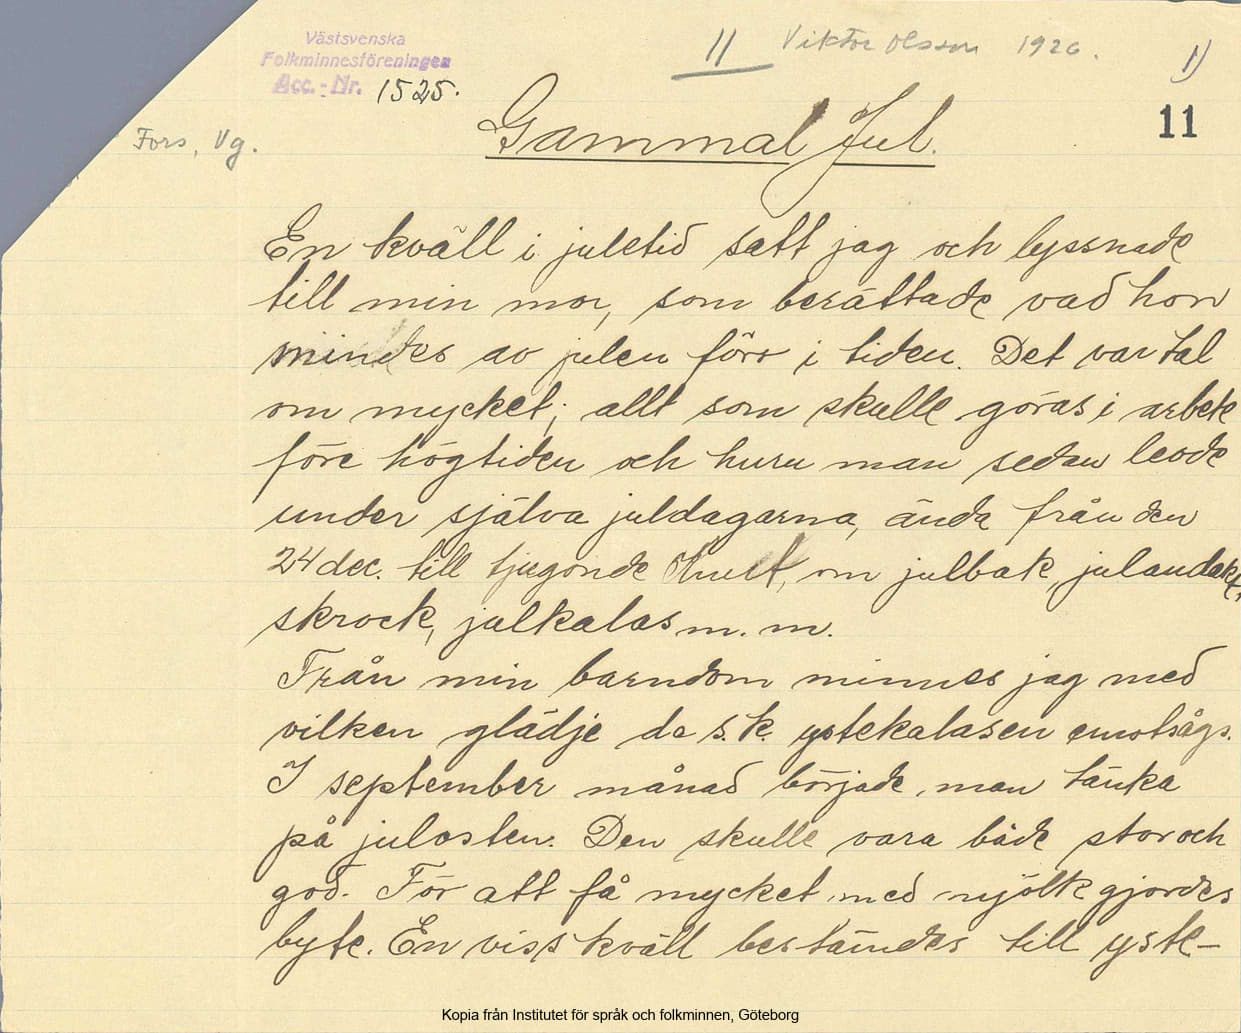 Västsvenska
Folkminnesföreningen
Acc.-Nr. 1525.
11 Viktor Olsson 1926. 1)
11
Fors, Vg.
Gammal Jul.
En kväll i juletid satt jag och lyssnade
till min mor, som berättade vad hon
mindes av julen förr i tiden. Det var tal
om mycket; allt som skulle göras i arbete
före högtiden och huru man sedan levde
under själva juldagarna, ända från den
24 dec. till tjugonde Knut, om julbak, julandakt,
skrock, julkalas m. m.
Från min barndom minnes jag med
vilken glädje de s.k. ystekalasen emotsågs.
I september månad började man tänka
på julosten. Den skulle vara både stor och
god. För att få mycket med mjölk gjordes
byte. En viss kväll bestämdes till yste-
Kopia från Institutet för språk och folkminnen, Göteborg